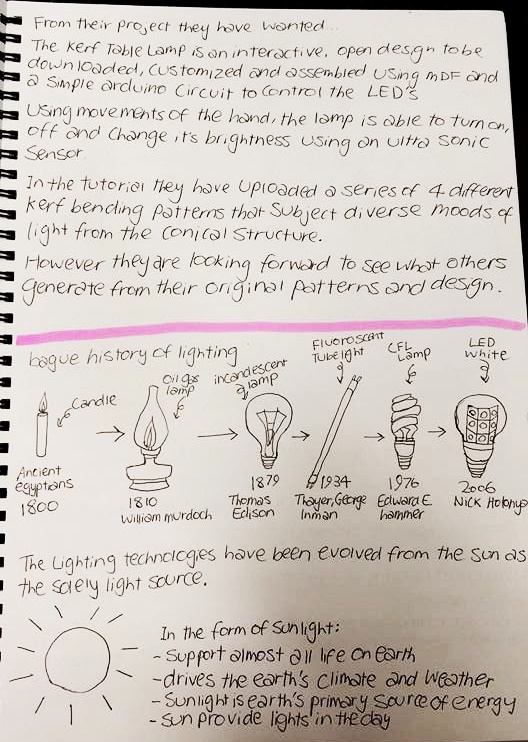 From their project they have wanted...
The kerf Table Lamp is an interactive, open design to be
downloaded, customized and assembled using MDF and
a simple arduino circuit to control the LED's
Using movements of the hand, the lamp is able to turn on,
off and change it's brightness using an ultra sonic
Sensor.
In the tutorial they have uploaded a series of 4 different
kerf bending patterns that subject diverse moods of
light from the conical structure.
However they are looking forward to see what others
generate from their original patterns and design.
bague history of lighting
Candle
Ancient
egyptians
1800
Oil gas
lamp
1810
William murdoch
incandescent
lamp
1879
Thomas
Edison
Fluoroscant
Tube light
1934
Thayer, George
Inman
CFL
Lamp
1976
Edward E.
hammer
LED
white
2006
Nick Holonya
The Lighting technologies have been evolved from the sun as
the solely light source.
In the form of sunlight:
- Support almost all life on earth
- drives the earth's climate and weather
- Sunlight is earth's primary source of energy
- sun provide lights in the day